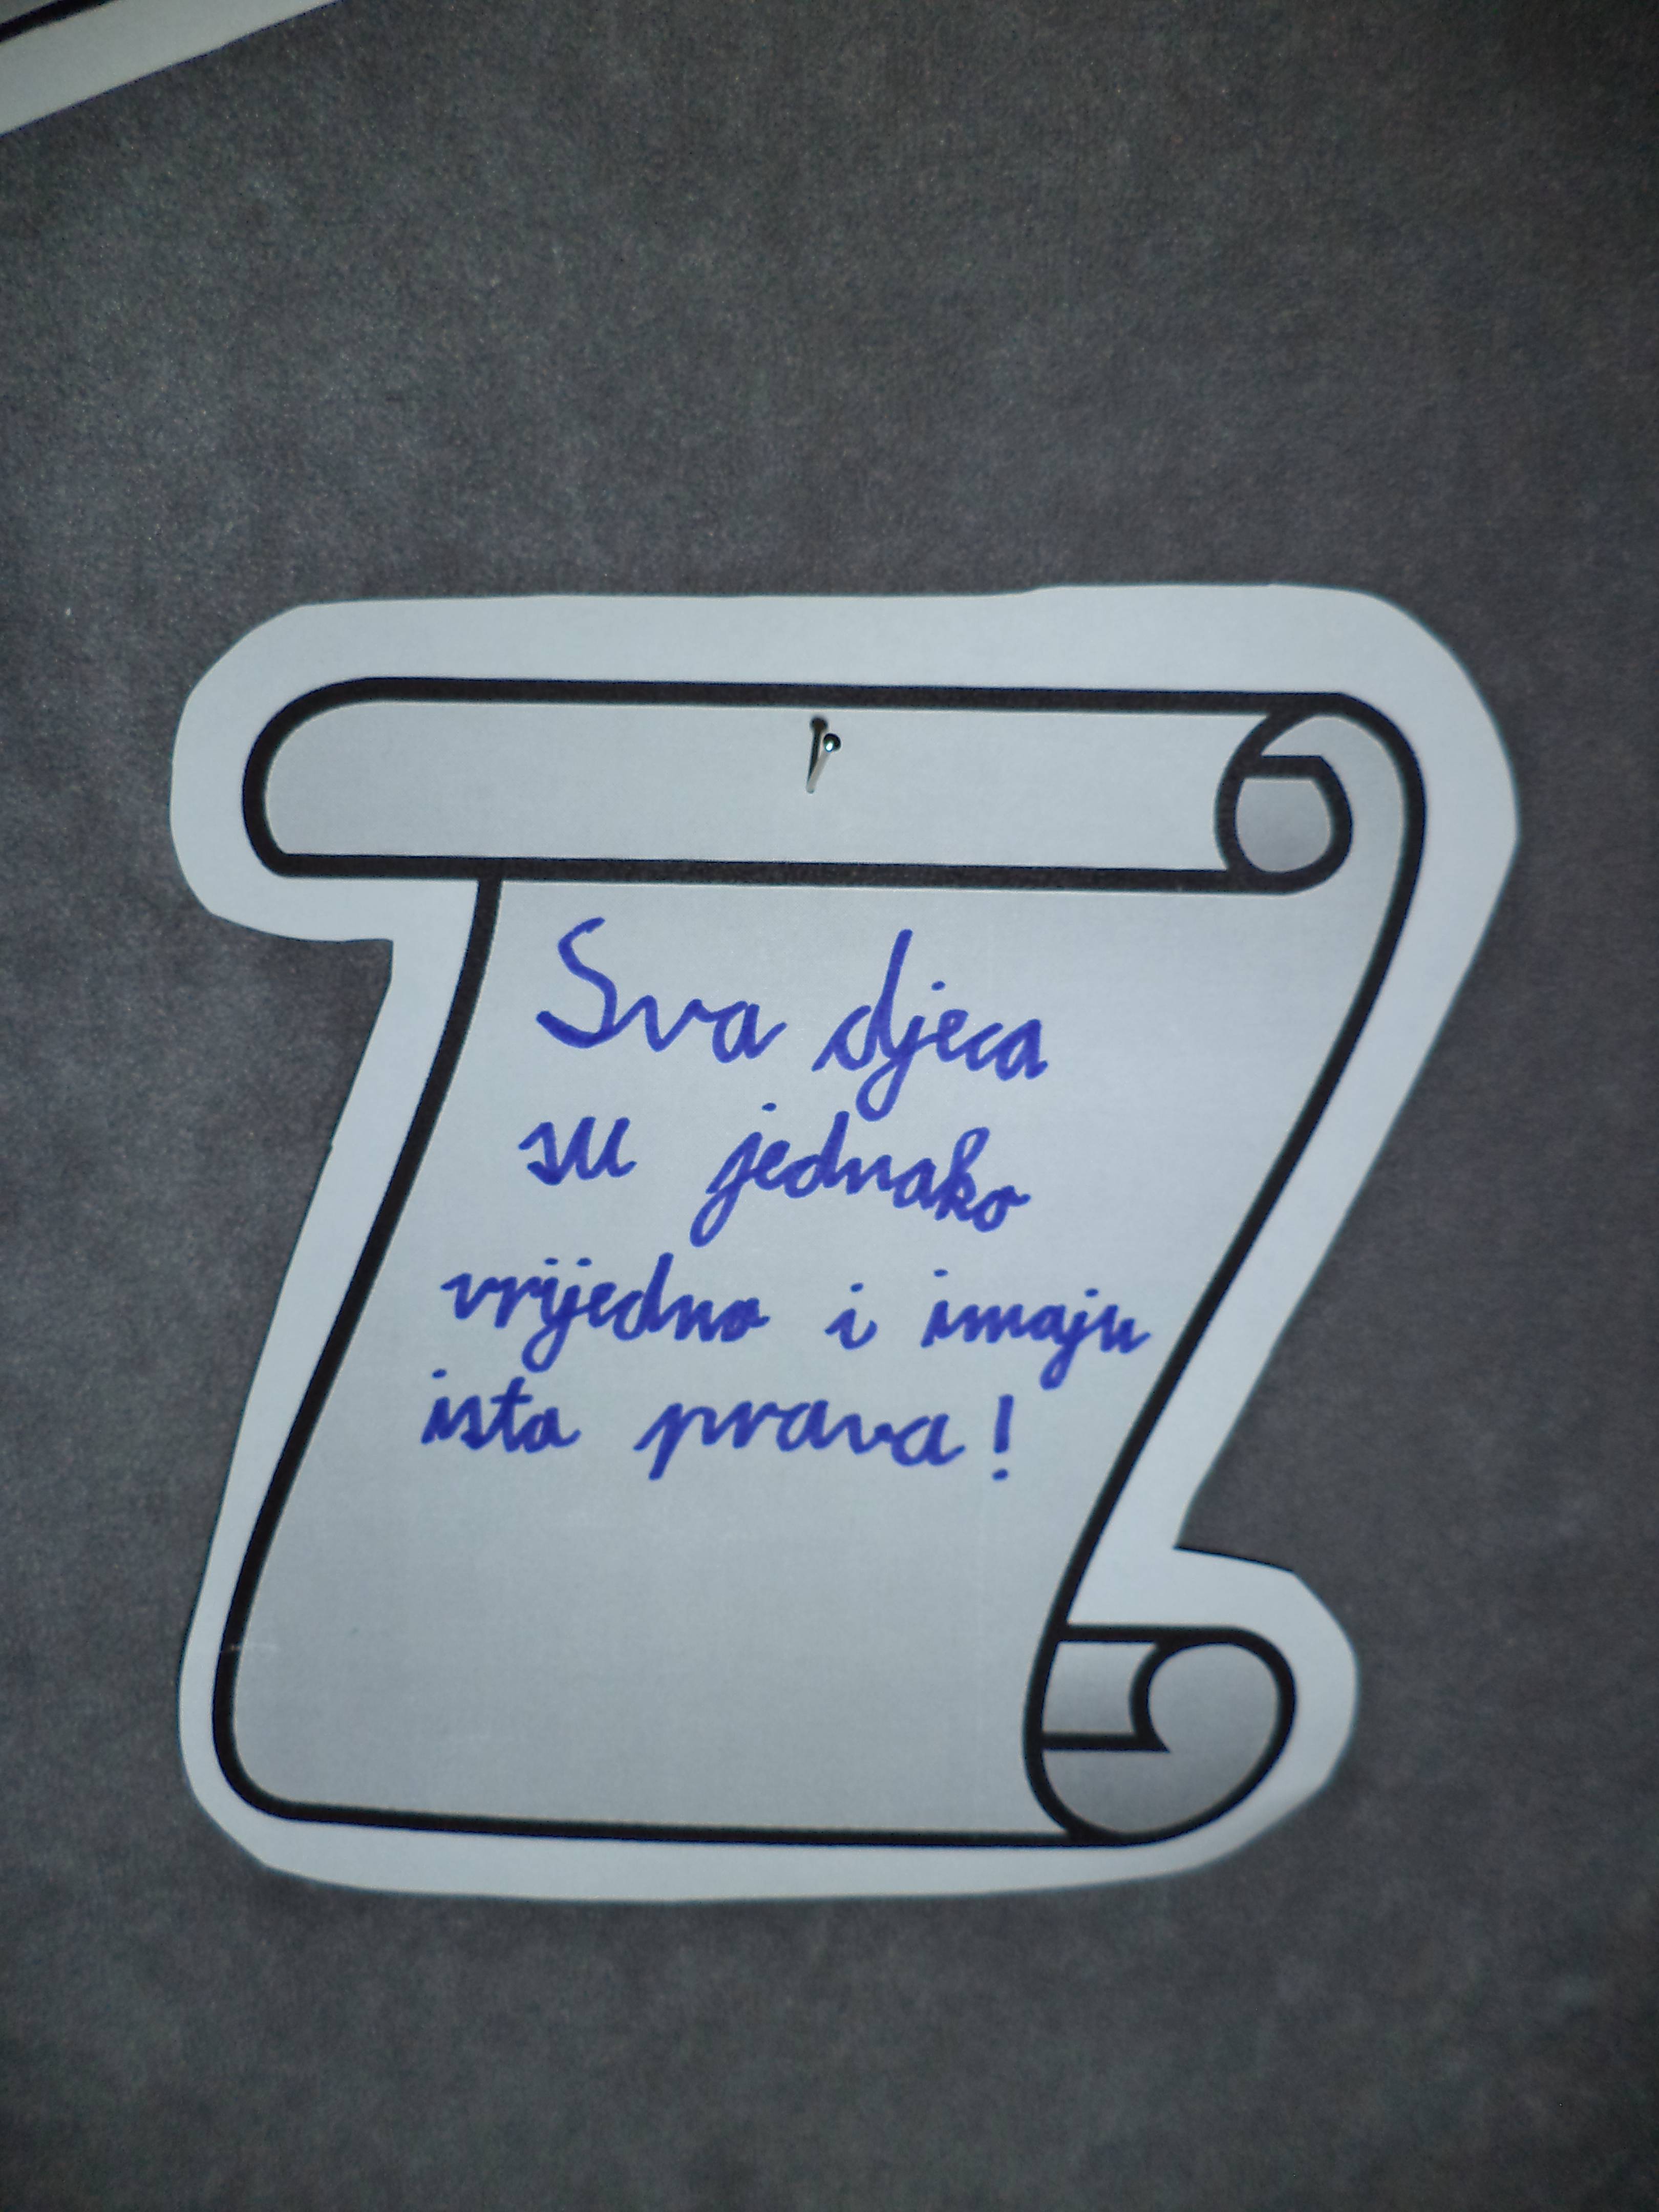 Sva djeca
su jednako
vrijedna i imaju
ista prava!